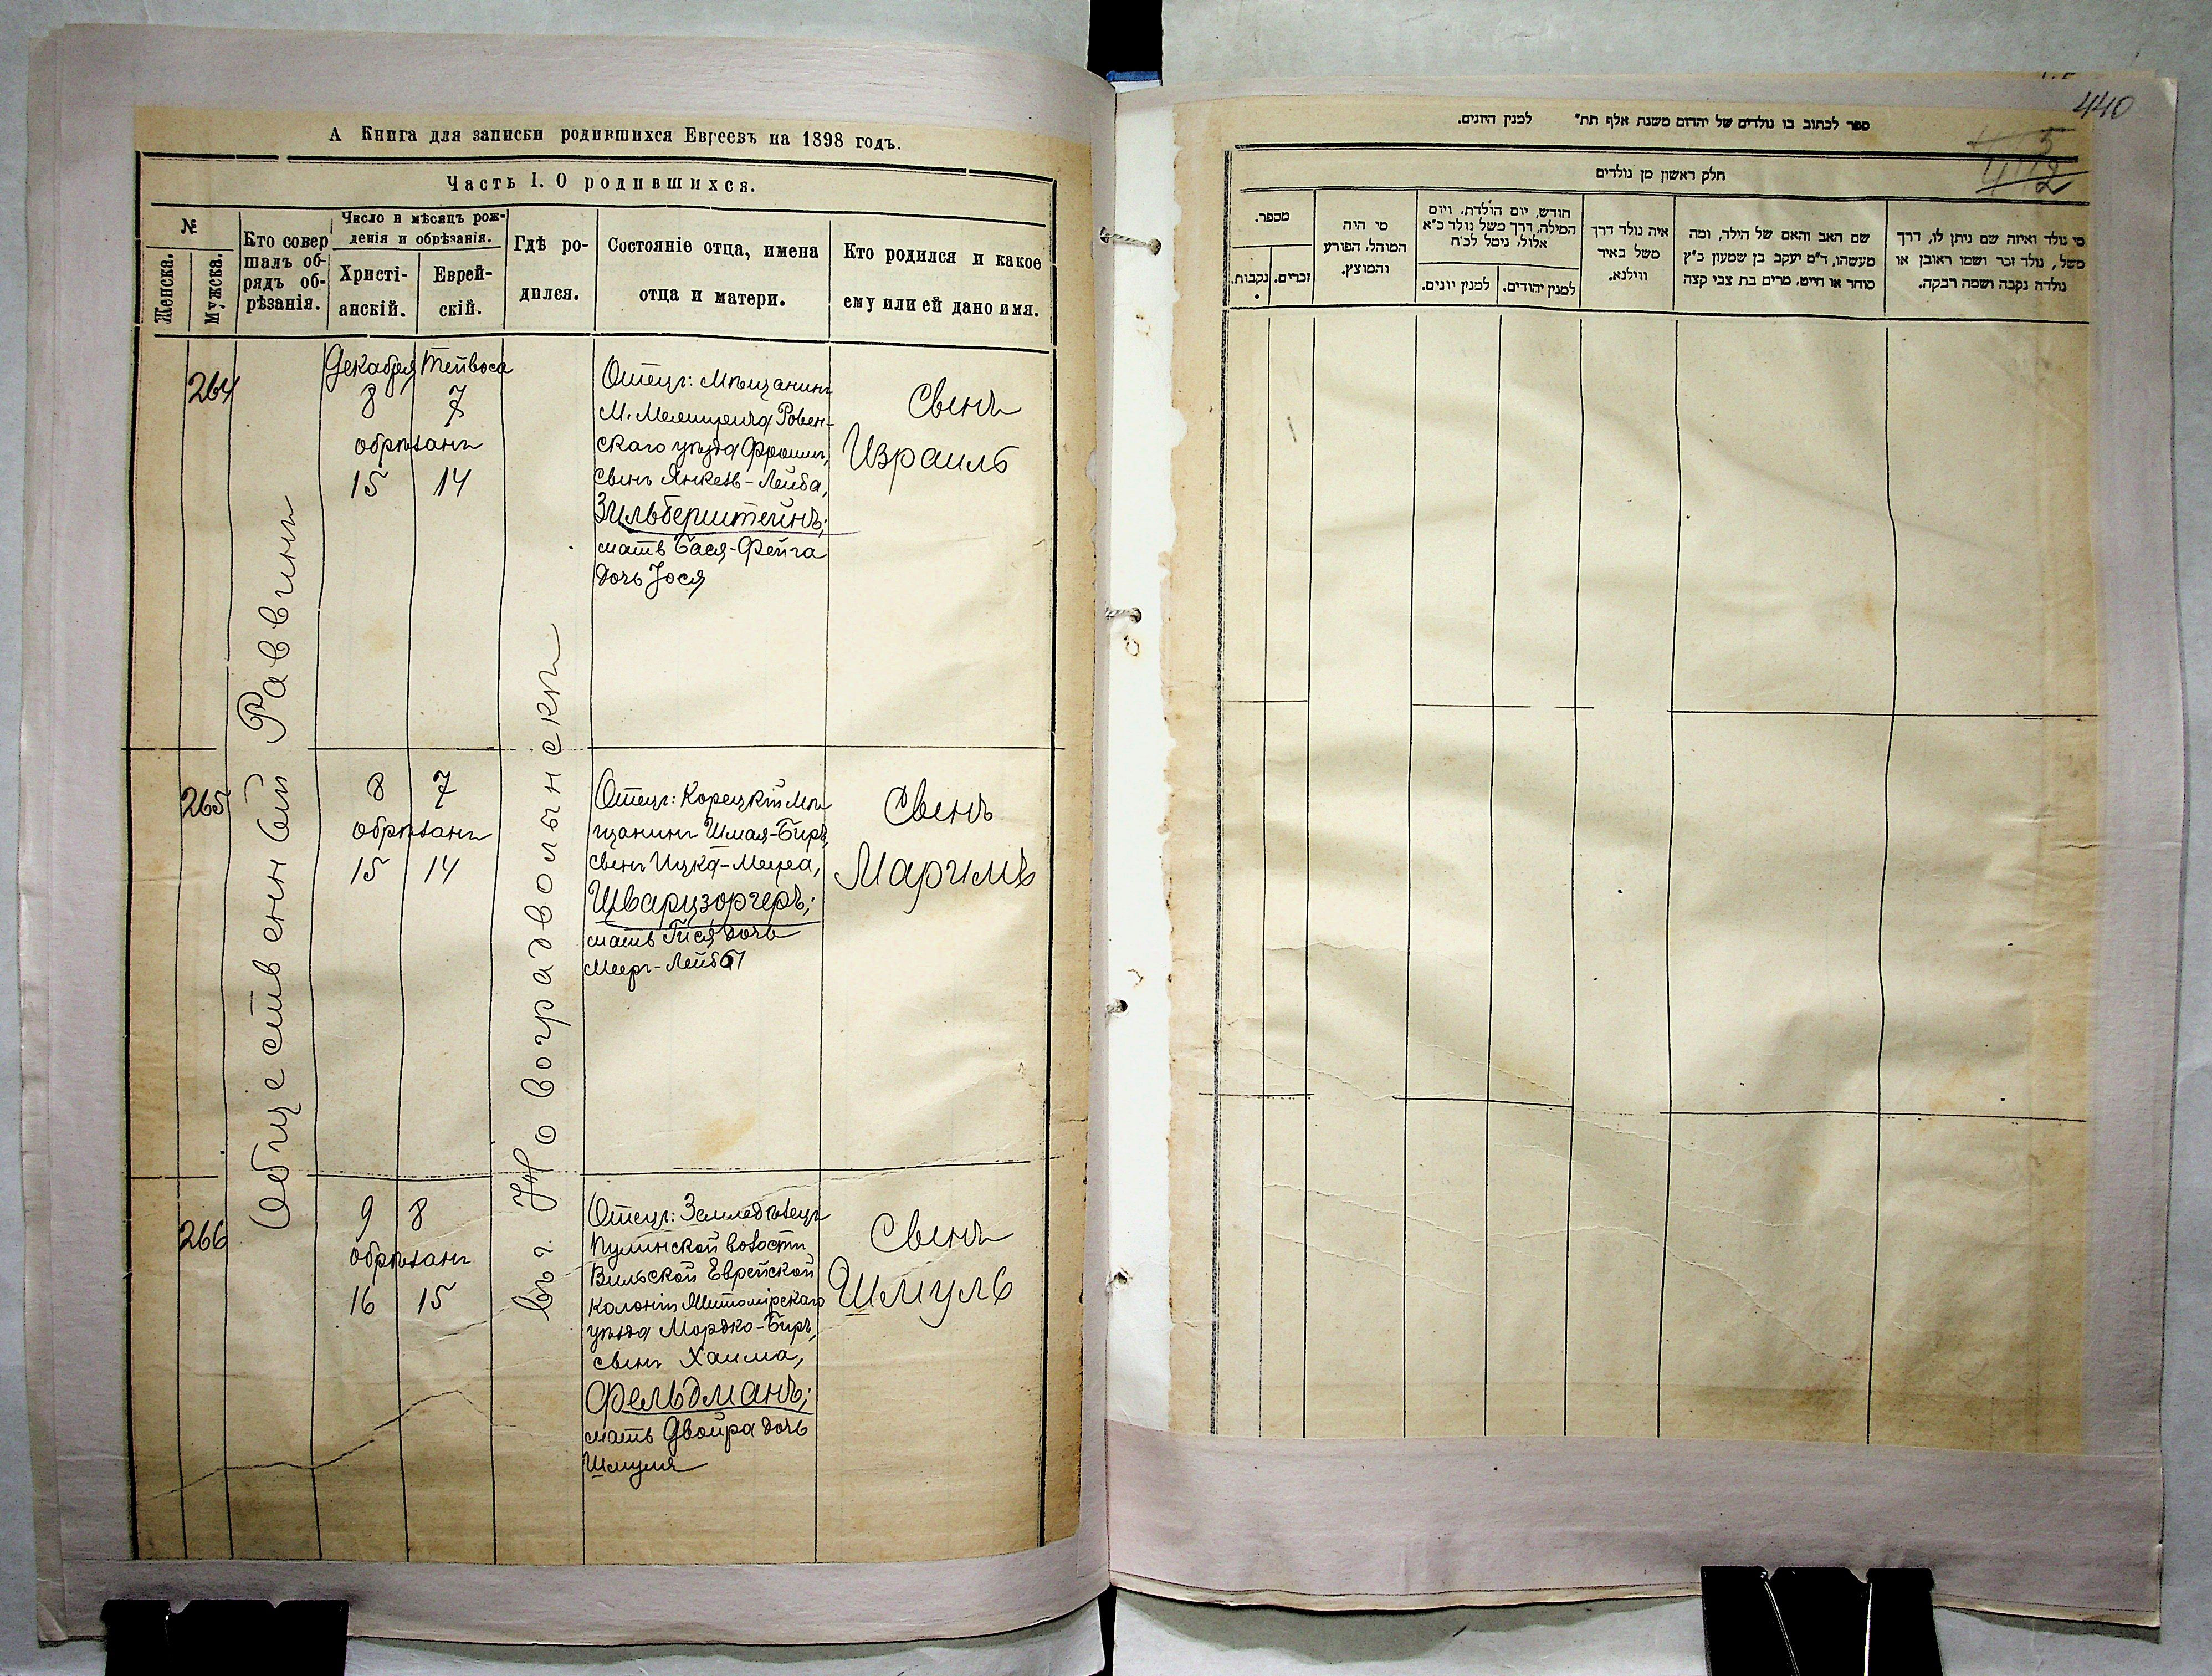 А Книга для записки родившихся Евреевъ на 1898 годъ.
Часть I. О родившихся.
№
Женска.
Мужска.
Кто совер
шалъ об-
рядъ об-
рѣзанія.
Число и мѣсяцъ рож-
денія и обрѣзанія.
Христі-
анскій.
Еврей-
скій.
Гдѣ ро-
дился.
Состояніе отца, имена
отца и матери.
Кто родился и какое
ему или ей дано имя.
Общественный Раввинъ
въ г. Новоградволынскѣ
264
Декабря Тейвоса
8 7
обрѣзанъ
15 14
Отецъ: Мѣщанинъ
М. Межирича Ровен-
скаго уѣзда Фроимъ,
сынъ Янкель-Лейба,
Зильберштейнъ;
мать Бася-Фейга
дочь Іося
Сынъ
Израиль
265
8 7
обрѣзанъ
15 14
Отецъ: Корецкій Мѣ
щанинъ Шмая-Беръ,
сынъ Ицка-Меера,
Шварцзоргеръ;
мать Гися дочь
Мееръ-Лейбы
Сынъ
266
9 8
обрѣзанъ
16 15
Отецъ: Земледѣлецъ
Пулинской волости
Вильской Еврейской
колоніи Житомірскаго
уѣзда Мордко-Беръ,
сынъ Хаима,
Фельдманъ;
мать Двойра дочь
Шмуля
Сынъ
Шмуль
440
ספר לכתוב בו נולדים של יהדום משנת אלף תת״ למנין היונים.
חלק ראשון מן נולדים
מספר.
נקבות.
זכרים.
מי היה
המוהל, הפורע
והמוצץ.
חודש, יום הולדת, ויום
המילה, דרך משל נולד כ״א
אלול, נימל לכ״ח
למנין יונים.
למנין יהודים.
איה נולד דרך
משל באיר
ווילנא.
שם האב והאם של הילד, ומה
מעשהו, ד״מ יעקב בן שמעון כ״ץ
סוחר או חייט, מרים בת צבי קצה
מי נולד ואיזה שם ניתן לו, דרך
משל, נולד זכר ושמו ראובן או
נולדה נקבה ושמה רבקה.